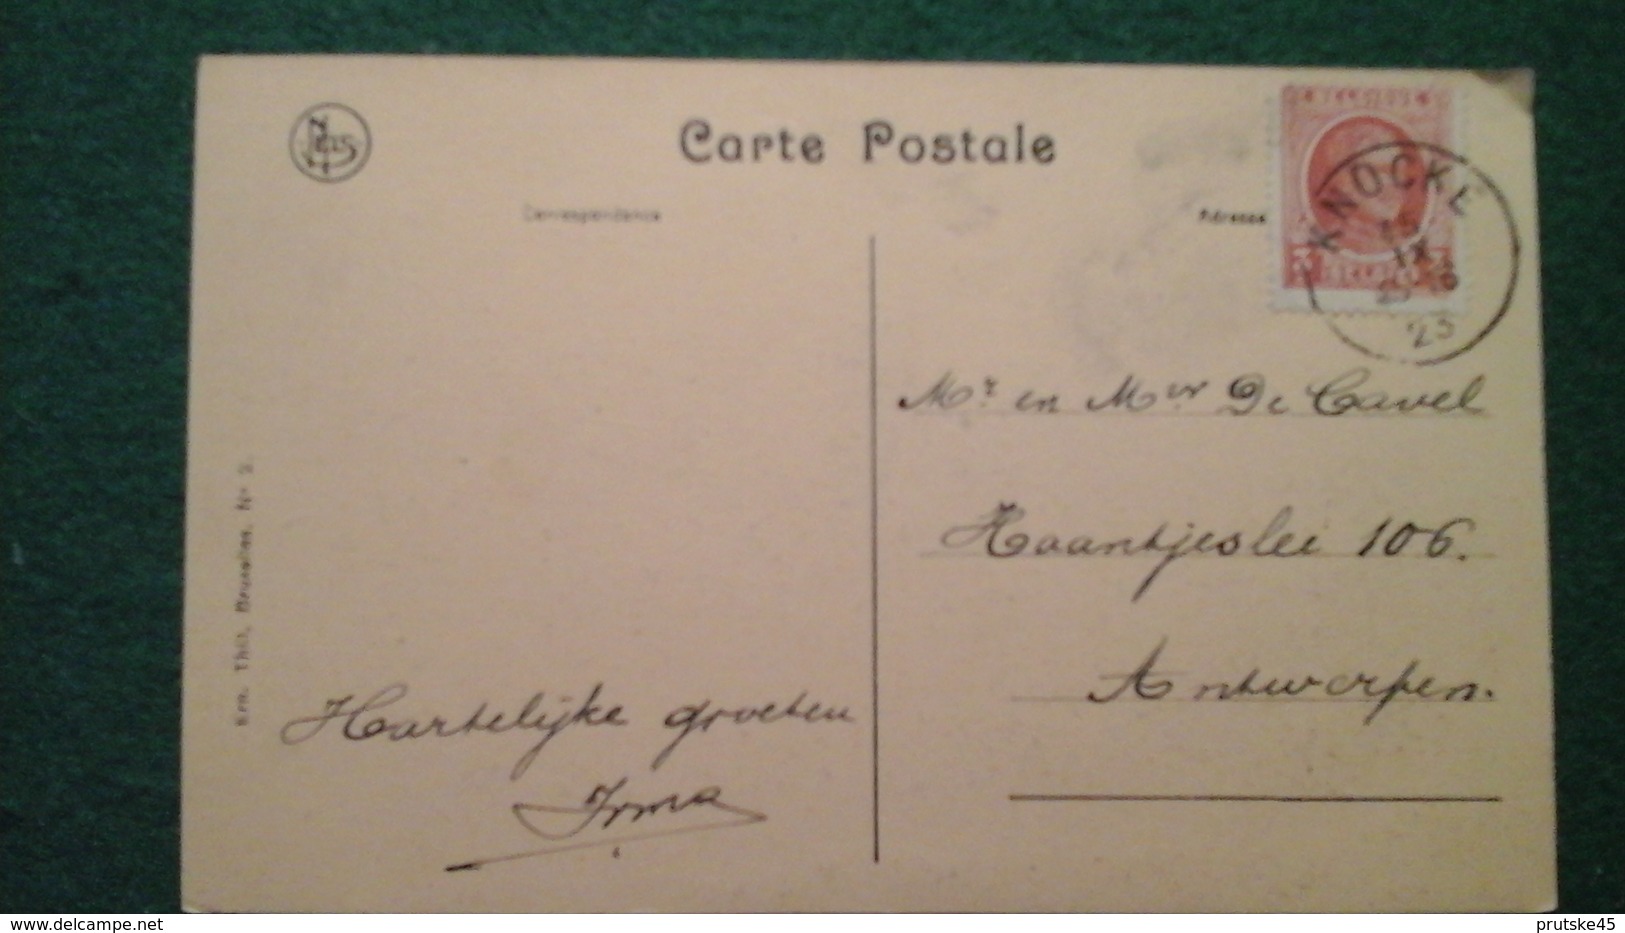 Nels
Carte Postale
Correspondance
Adresse
KNOCKE
IX
23
Mr en Mvr De Cavel
Haantjeslei 106.
Antwerpen.
Hartelijke groeten
Irma
Ern. Thill, Bruxelles. No 2.
delcampe.net
prutske45